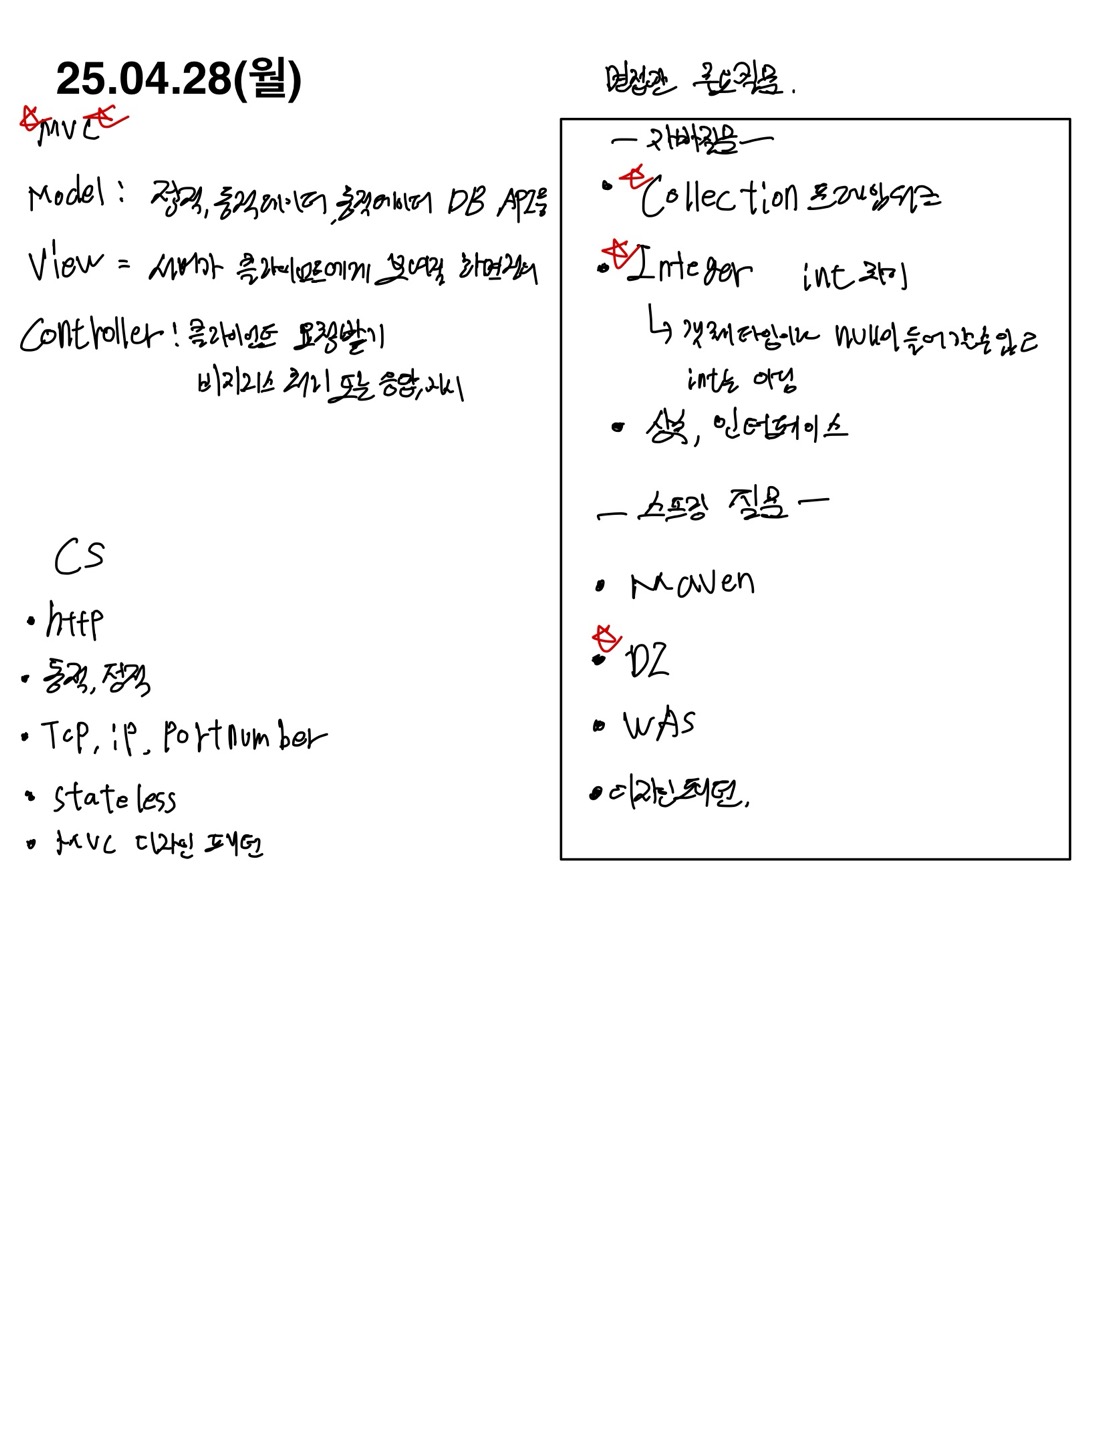 25.04.28(월)
MVC
Model : 정적, 동적데이터, 총적데이터 DB API등
View = 서버가 클라이언트에게 보여질 화면정의
Controller : 클라이언트 요청받기
비지니스 처리 또는 응답, 지시
CS
• http
• 동적, 정적
• Tcp, ip, Portnumber
• stateless
• MVC 디자인 패턴
면접관 주요질문.
— 자바질문 —
• Collection 프레임워크
• Integer int 차이
↳ 객체타입이라 null이 들어갈수있고
int는 아님
• 상속, 인터페이스
— 스프링 질문 —
• Maven
• DI
• WAS
• 디자인패턴.